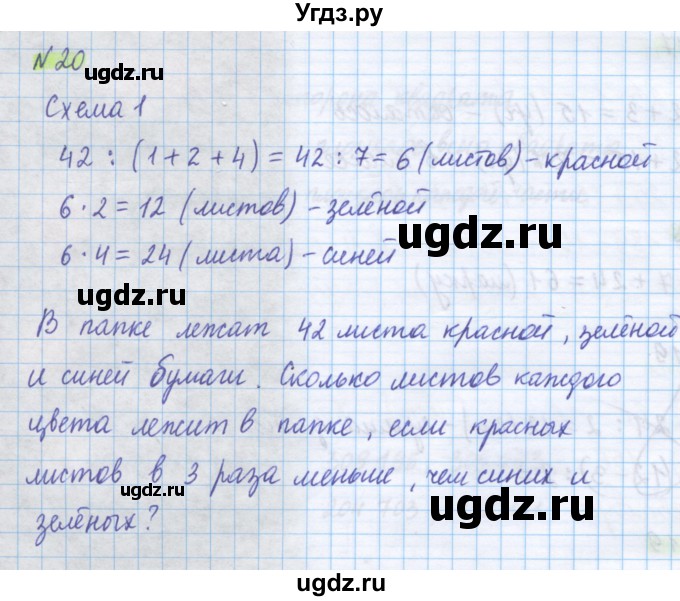 Угдз.ру
№20
ugdz.ru
Схема 1
42 : (1+2+4) = 42 : 7 = 6 (листов) - красной
6 · 2 = 12 (листов) - зелёной
ugdz.ru
6 · 4 = 24 (листа) - синей
ugdz.ru
В папке лежат 42 листа красной, зелёной
и синей бумаги. Сколько листов каждого
цвета лежит в папке, если красных
листов в 3 раза меньше, чем синих и
ugdz.ru
ugdz.ru
зелёных?
ugdz.ru